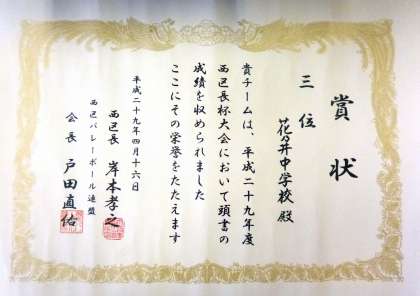 賞状
三位
花々井中学校殿
貴チームは、平成二十九年度
西区長杯大会において頭書の
成績を収められました
ここにその栄誉をたたえます
平成二十九年四月十六日
西区長 岸本孝之
西区バレーボール連盟
会長 戸田直佑